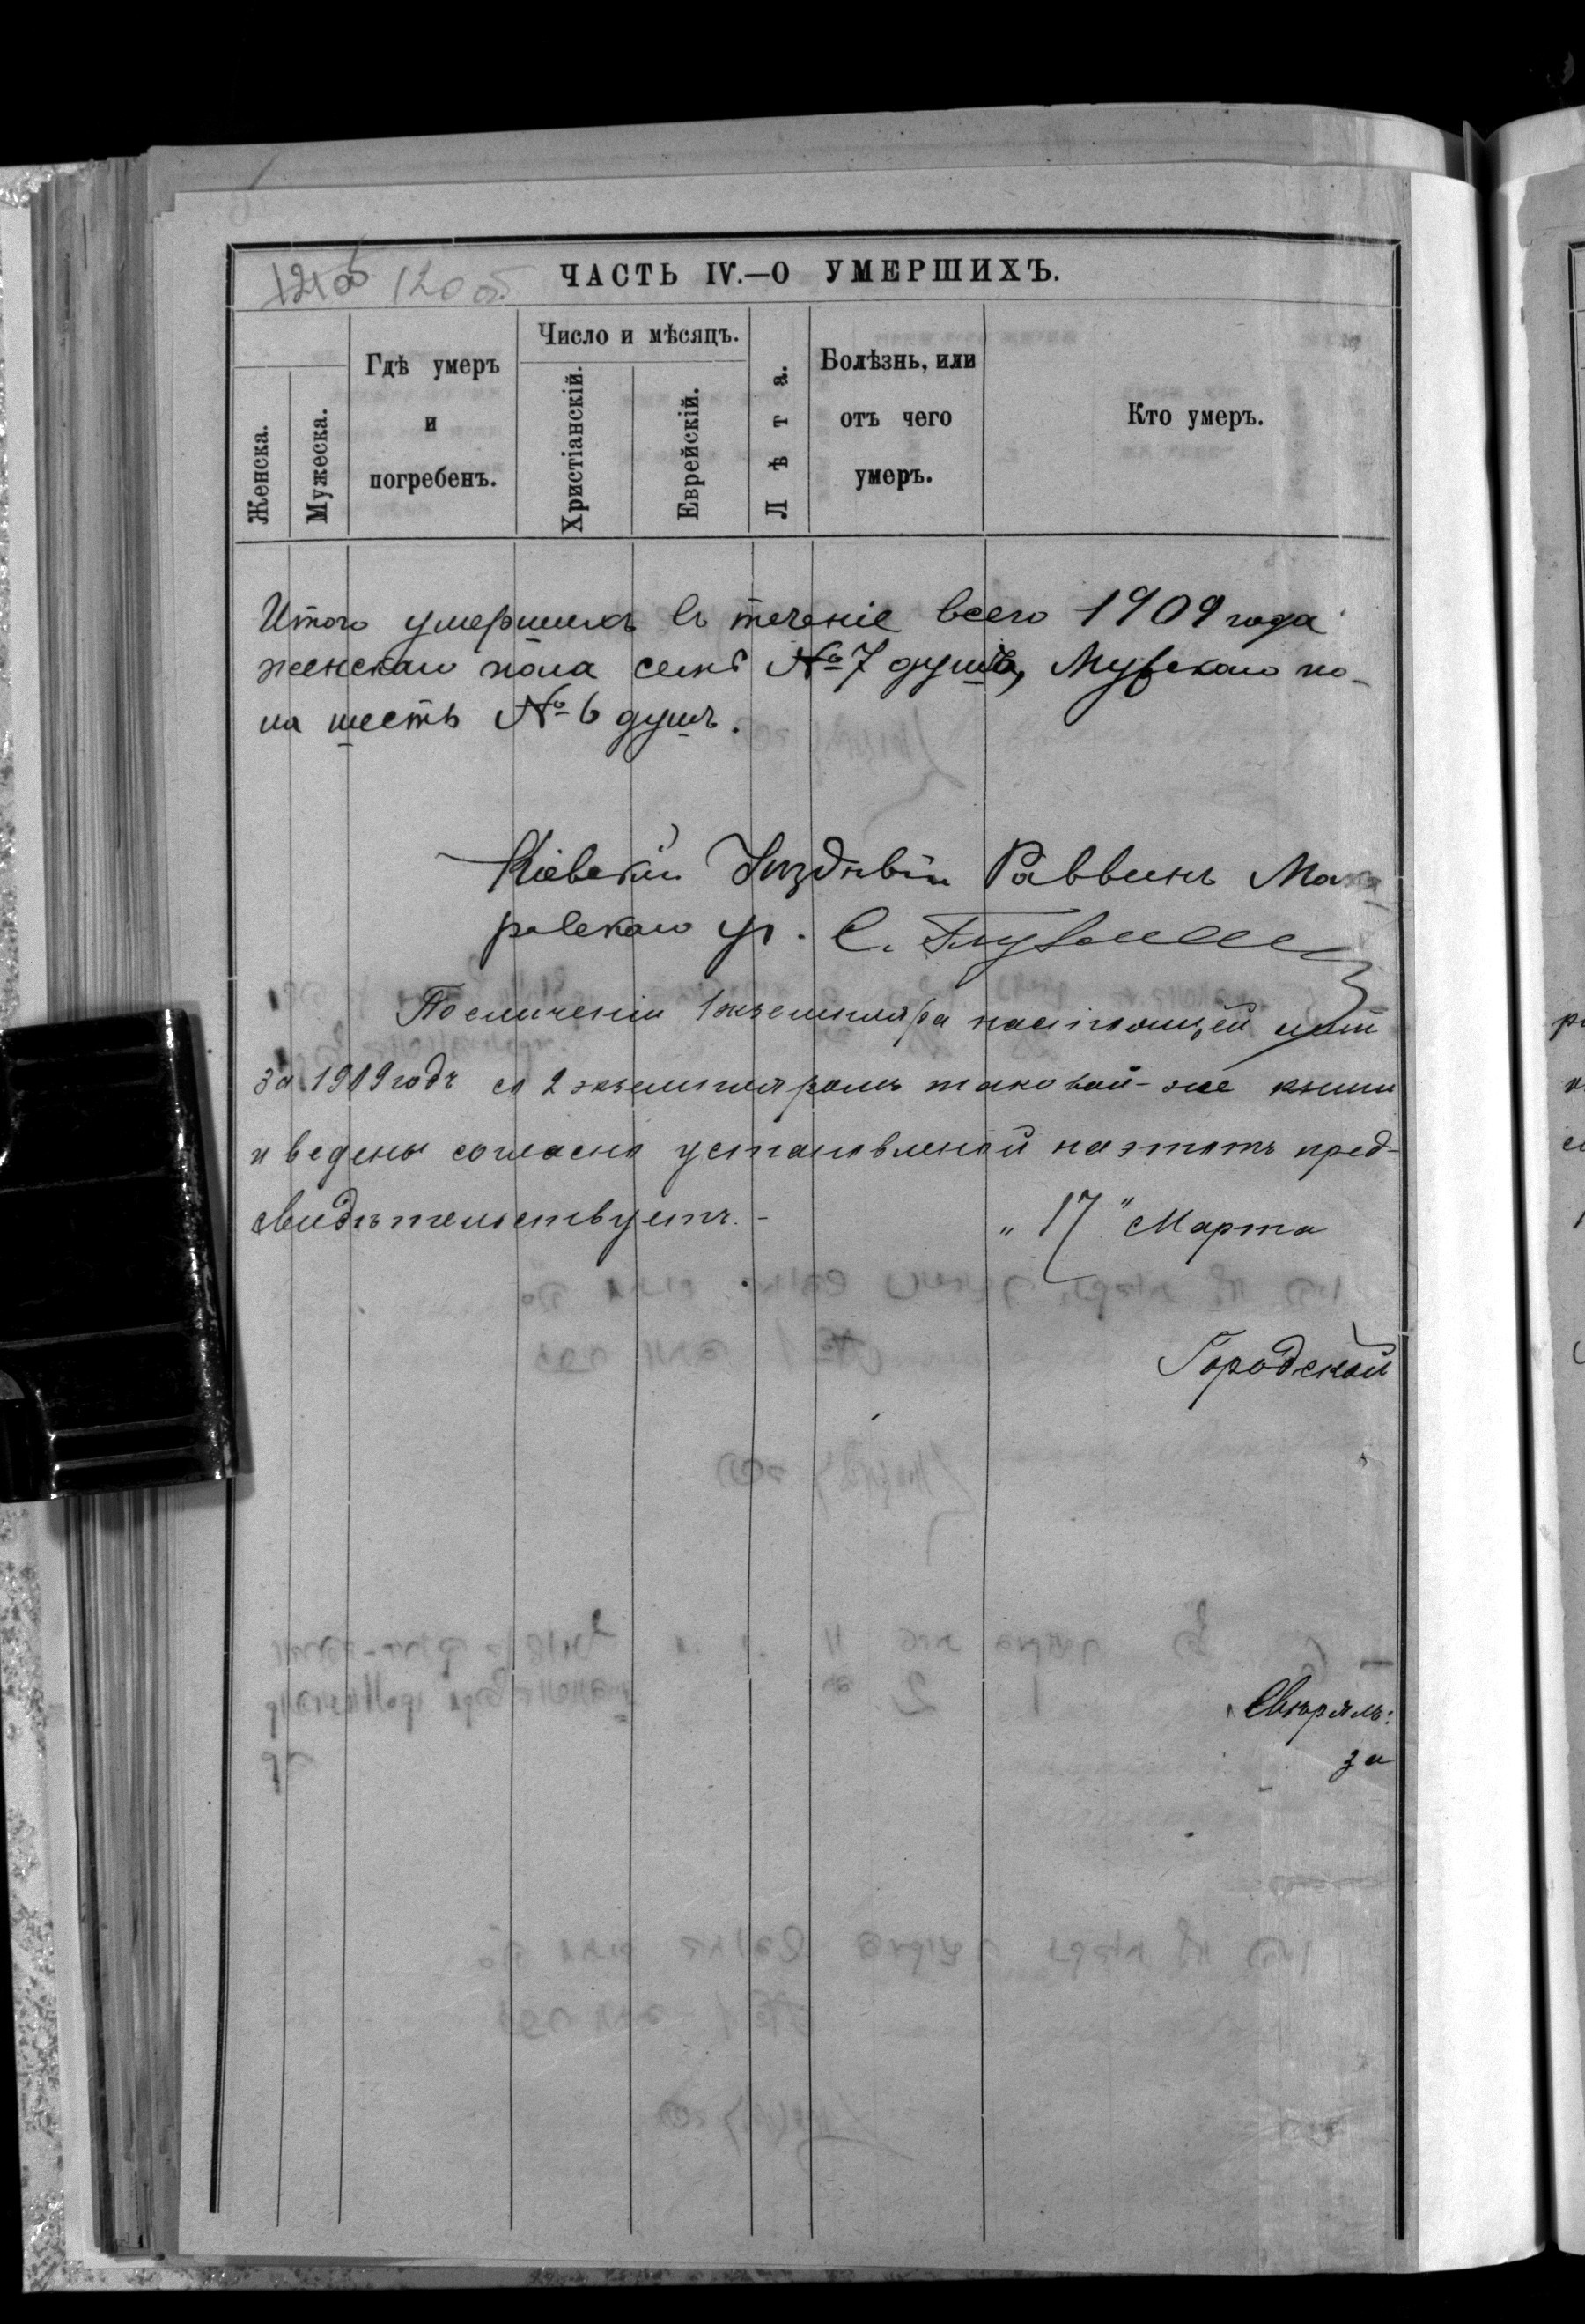 120 об.
ЧАСТЬ IV.—О УМЕРШИХЪ.
Женска.
Мужеска.
Гдѣ умеръ
и
погребенъ.
Число и мѣсяцъ.
Христіанскій.
Еврейскій.
Лѣта.
Болѣзнь, или
отъ чего
умеръ.
Кто умеръ.
Итого умершихъ въ теченіе всего 1909 года
женскаго пола семь №7 душъ, Мужскаго по-
ла шесть № 6 душъ.
Кіевскій Уѣздный Раввинъ Мака-
ровскаго ур. С.
По сличеніи 1 экземпляра настоящей
за 1909 годъ съ 2 экземпляромъ таковой-же книги
и ведены согласно установленной на этотъ пред-
свидѣтельствуетъ.- „17" Марта
Городской
Свѣрялъ:
за